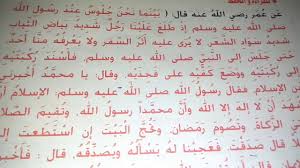 عَن عُمَر رضي اللهُ عنه قال ( بَيْنَما نَحْنُ جُلُوس عِنْدَ رسُول الله
صلى الله عليه وسلم إذ طَلَعَ علَيْنا رَجُلٌ شَديد بياض الثِّياب
شديد سَوَاد الشَّعر لا يُرى عليه أَثَر السَّفَر ولا يَعْرفُه مِنّا أحَد
حتى جَلَس إلى النبي صلى الله عليه وسلم، فأَسْنَد رُكْبَتَيْه
إلى رُكْبَتَيْه ووضع كَفَّيه على فَخِذيه، وقال: يا محمد أخبرني
فقال رسُول الله صلى الله عليه وسلم: الإسلام
أن لا إله إلا الله وأنّ محمداً رسُول الله، وتُقيم
الزكاة، وتَصُوم رَمَضان، وحُجّ البَيْت إن استَطَعت إ
صَدَقت. فعجبنا لَه يَسألُه ويُصَدِّقُه. قال: فأخْبِر